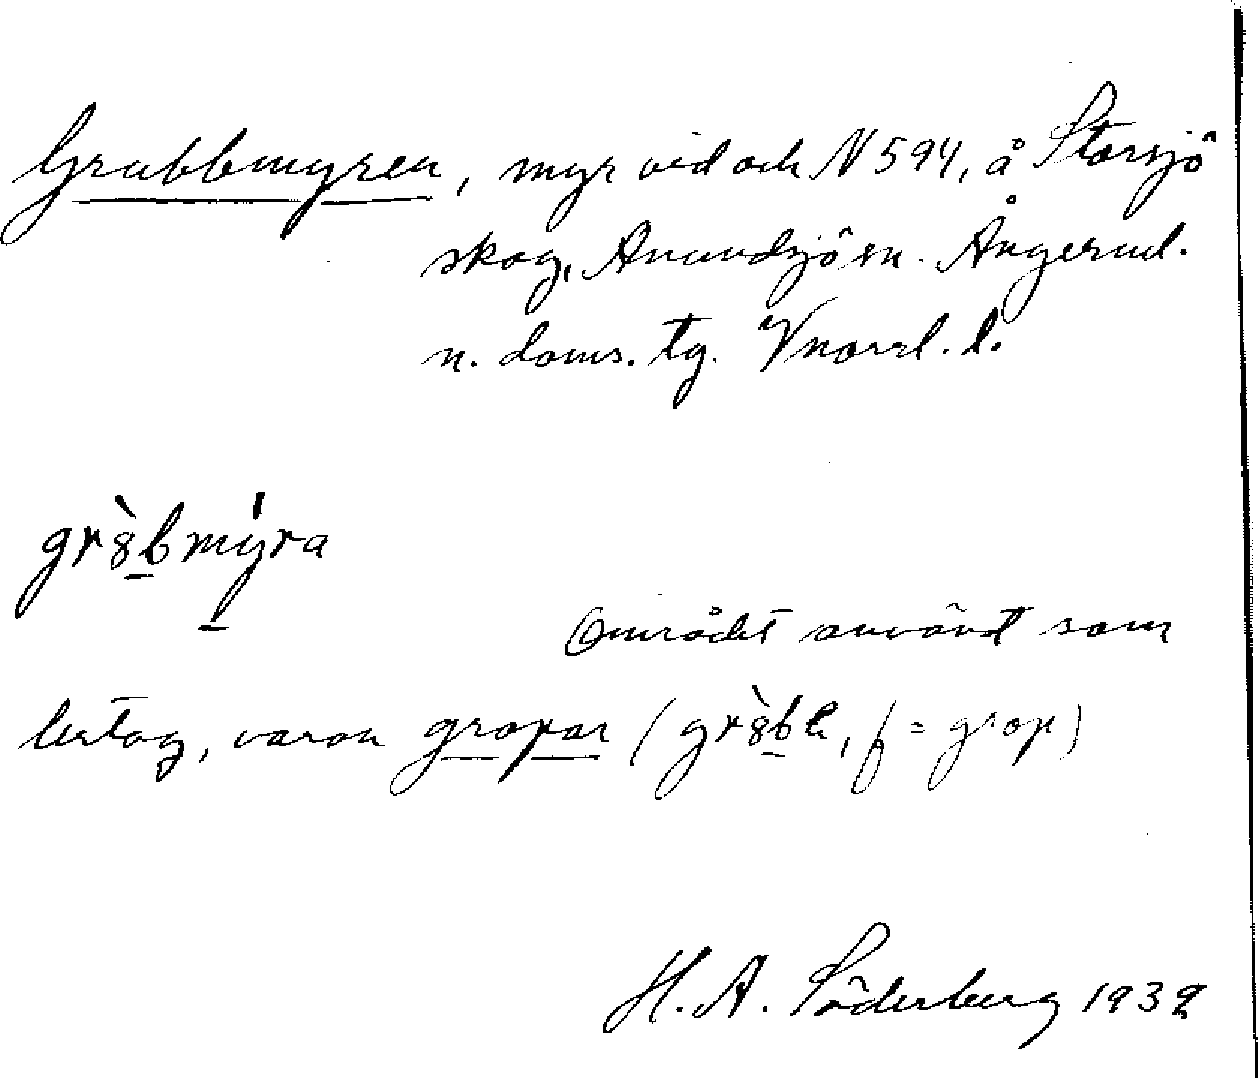 Grubbmyren, myr vid och N 594, å Storsjö
skog, Anundsjö sn. Ångerml.
n. doms. tg. Vnorrl. l.
grȣ̀bmýra
Området använt som
lertag, varon gropar (grȣ̀bb, f = grop)
H. A. Söderberg 1939